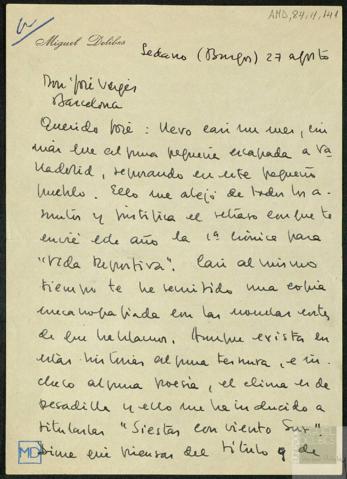 AMD, 84, 11, 141
Miguel Delibes
Sedano (Burgos) 27 agosto
Don José Vergés
Barcelona
Querido José: llevo casi un mes, sin
más que alguna pequeña escapada a Va-
lladolid, reposando en este pequeño
pueblo. Ello me alejó de todos los a-
suntos y justifica el retraso con que te
envié este año la 1ª crónica para
"Vida Deportiva". Casi al mismo
tiempo te he remitido una copia
mecanografiada con las novelas cortas
de que hablamos. Aunque exista en
estas historias alguna ternura, e in-
cluso alguna poesía, el clima es de
pesadilla y ello me ha inducido a
titularlas "Siestas con viento Sur".
Dime qué piensas del título y de
MD